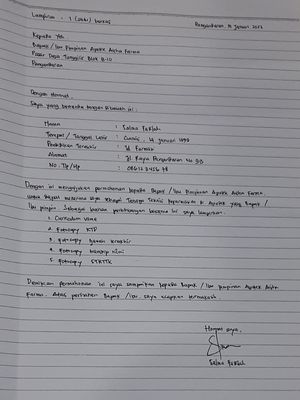 Lampiran : 1 (satu) berkas
Pangandaran, 14 Januari 2022
Kepada Yth
Bapak / Ibu Pimpinan Apotek Aisha Farma
Pasar Desa Blok B.10
Pangandaran
Dengan Hormat.
Saya yang bertanda tangan dibawah ini :
Nama : Salwa
Tempat / Tanggal Lahir : Ciamis, 4 Januari 1999
Pendidikan Terakhir : Farmasi
Alamat : Jl. Raya Pangandaran No
No. Tlp / Hp :
Dengan ini mengajukan permohonan kepada Bapak / Ibu Pimpinan Apotek Aisha Farma,
untuk dapat Tenaga Teknis Kefarmasian di Apotek yang Bapak /
Ibu pimpin. Sebagai bahan pertimbangan bersama ini saya lampirkan :
1. Curriculum Vitae
2. Fotocopy KTP
3. Fotocopy Ijazah terakhir
4. Fotocopy transkip nilai
5. Fotocopy STRTTK
Demikian permohonan ini saya sampaikan kepada Bapak / Ibu Pimpinan Apotek Aisha
Farma. Atas perhatian Bapak / Ibu, saya ucapkan terimakasih.
Hormat saya,
Salwa